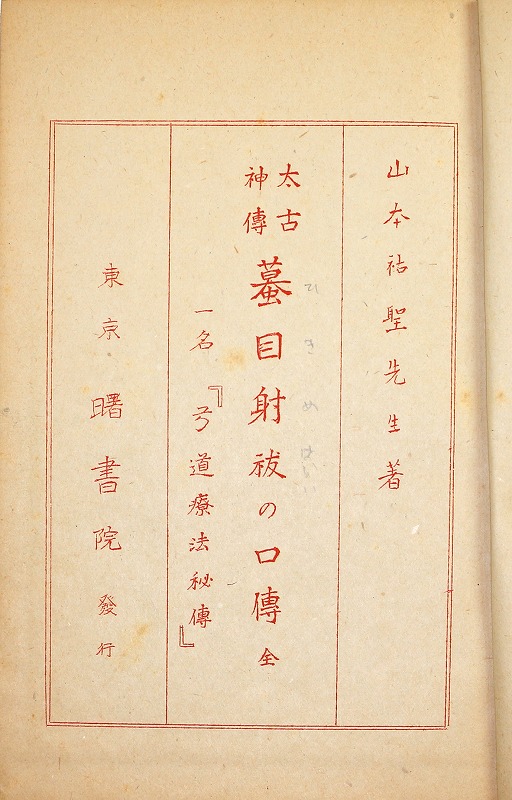 山本祐聖先生著
太古
神傳
蟇目射祓の口傳 全
ひきめ
一名『弓道療法秘傳』
東京 曙書院 發行